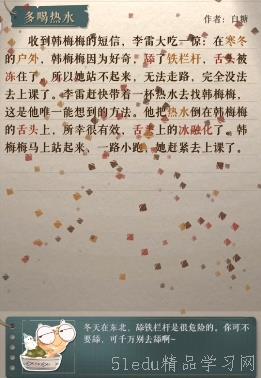 多喝热水
作者：白糖
收到韩梅梅的短信，李雷大吃一惊：在寒冬
的户外，韩梅梅因为好奇，舔了铁栏杆，舌头被
冻住了，所以她站不起来，无法走路，完全没法
去上课了。李雷赶快带着一杯热水去找韩梅梅，
这是他唯一能想到的方法。他把热水倒在韩梅梅
的舌头上，所幸很有效，舌头上的冰融化了。韩
梅梅马上站起来，一路小跑，她赶紧去上课了。
冬天在东北，舔铁栏杆是很危险的。你可不
要舔，可千万别去舔啊~
51edu精品学习网